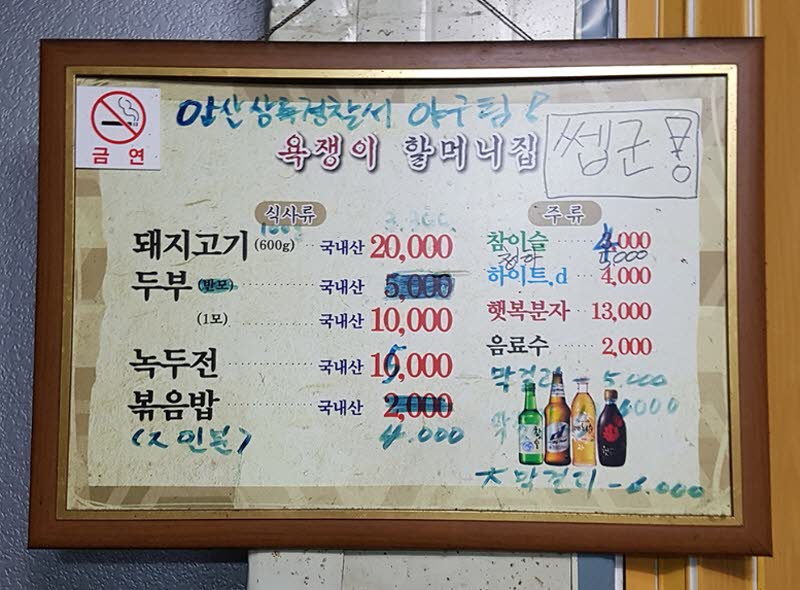 금 연
안산상록경찰서 야구팀
쎕군
욕쟁이 할머니집
식사류
돼지고기 (600g) 국내산 20,000
두부 (반모) 국내산 5,000
(1모) 국내산 10,000
녹두전 국내산 15,000
볶음밥 국내산 2,000
4.000
주 류
참이슬 4,000
하이트,d 4,000
햇복분자 13,000
음료수 2,000
막걸리 5.000
6000
막걸리 - 6.000